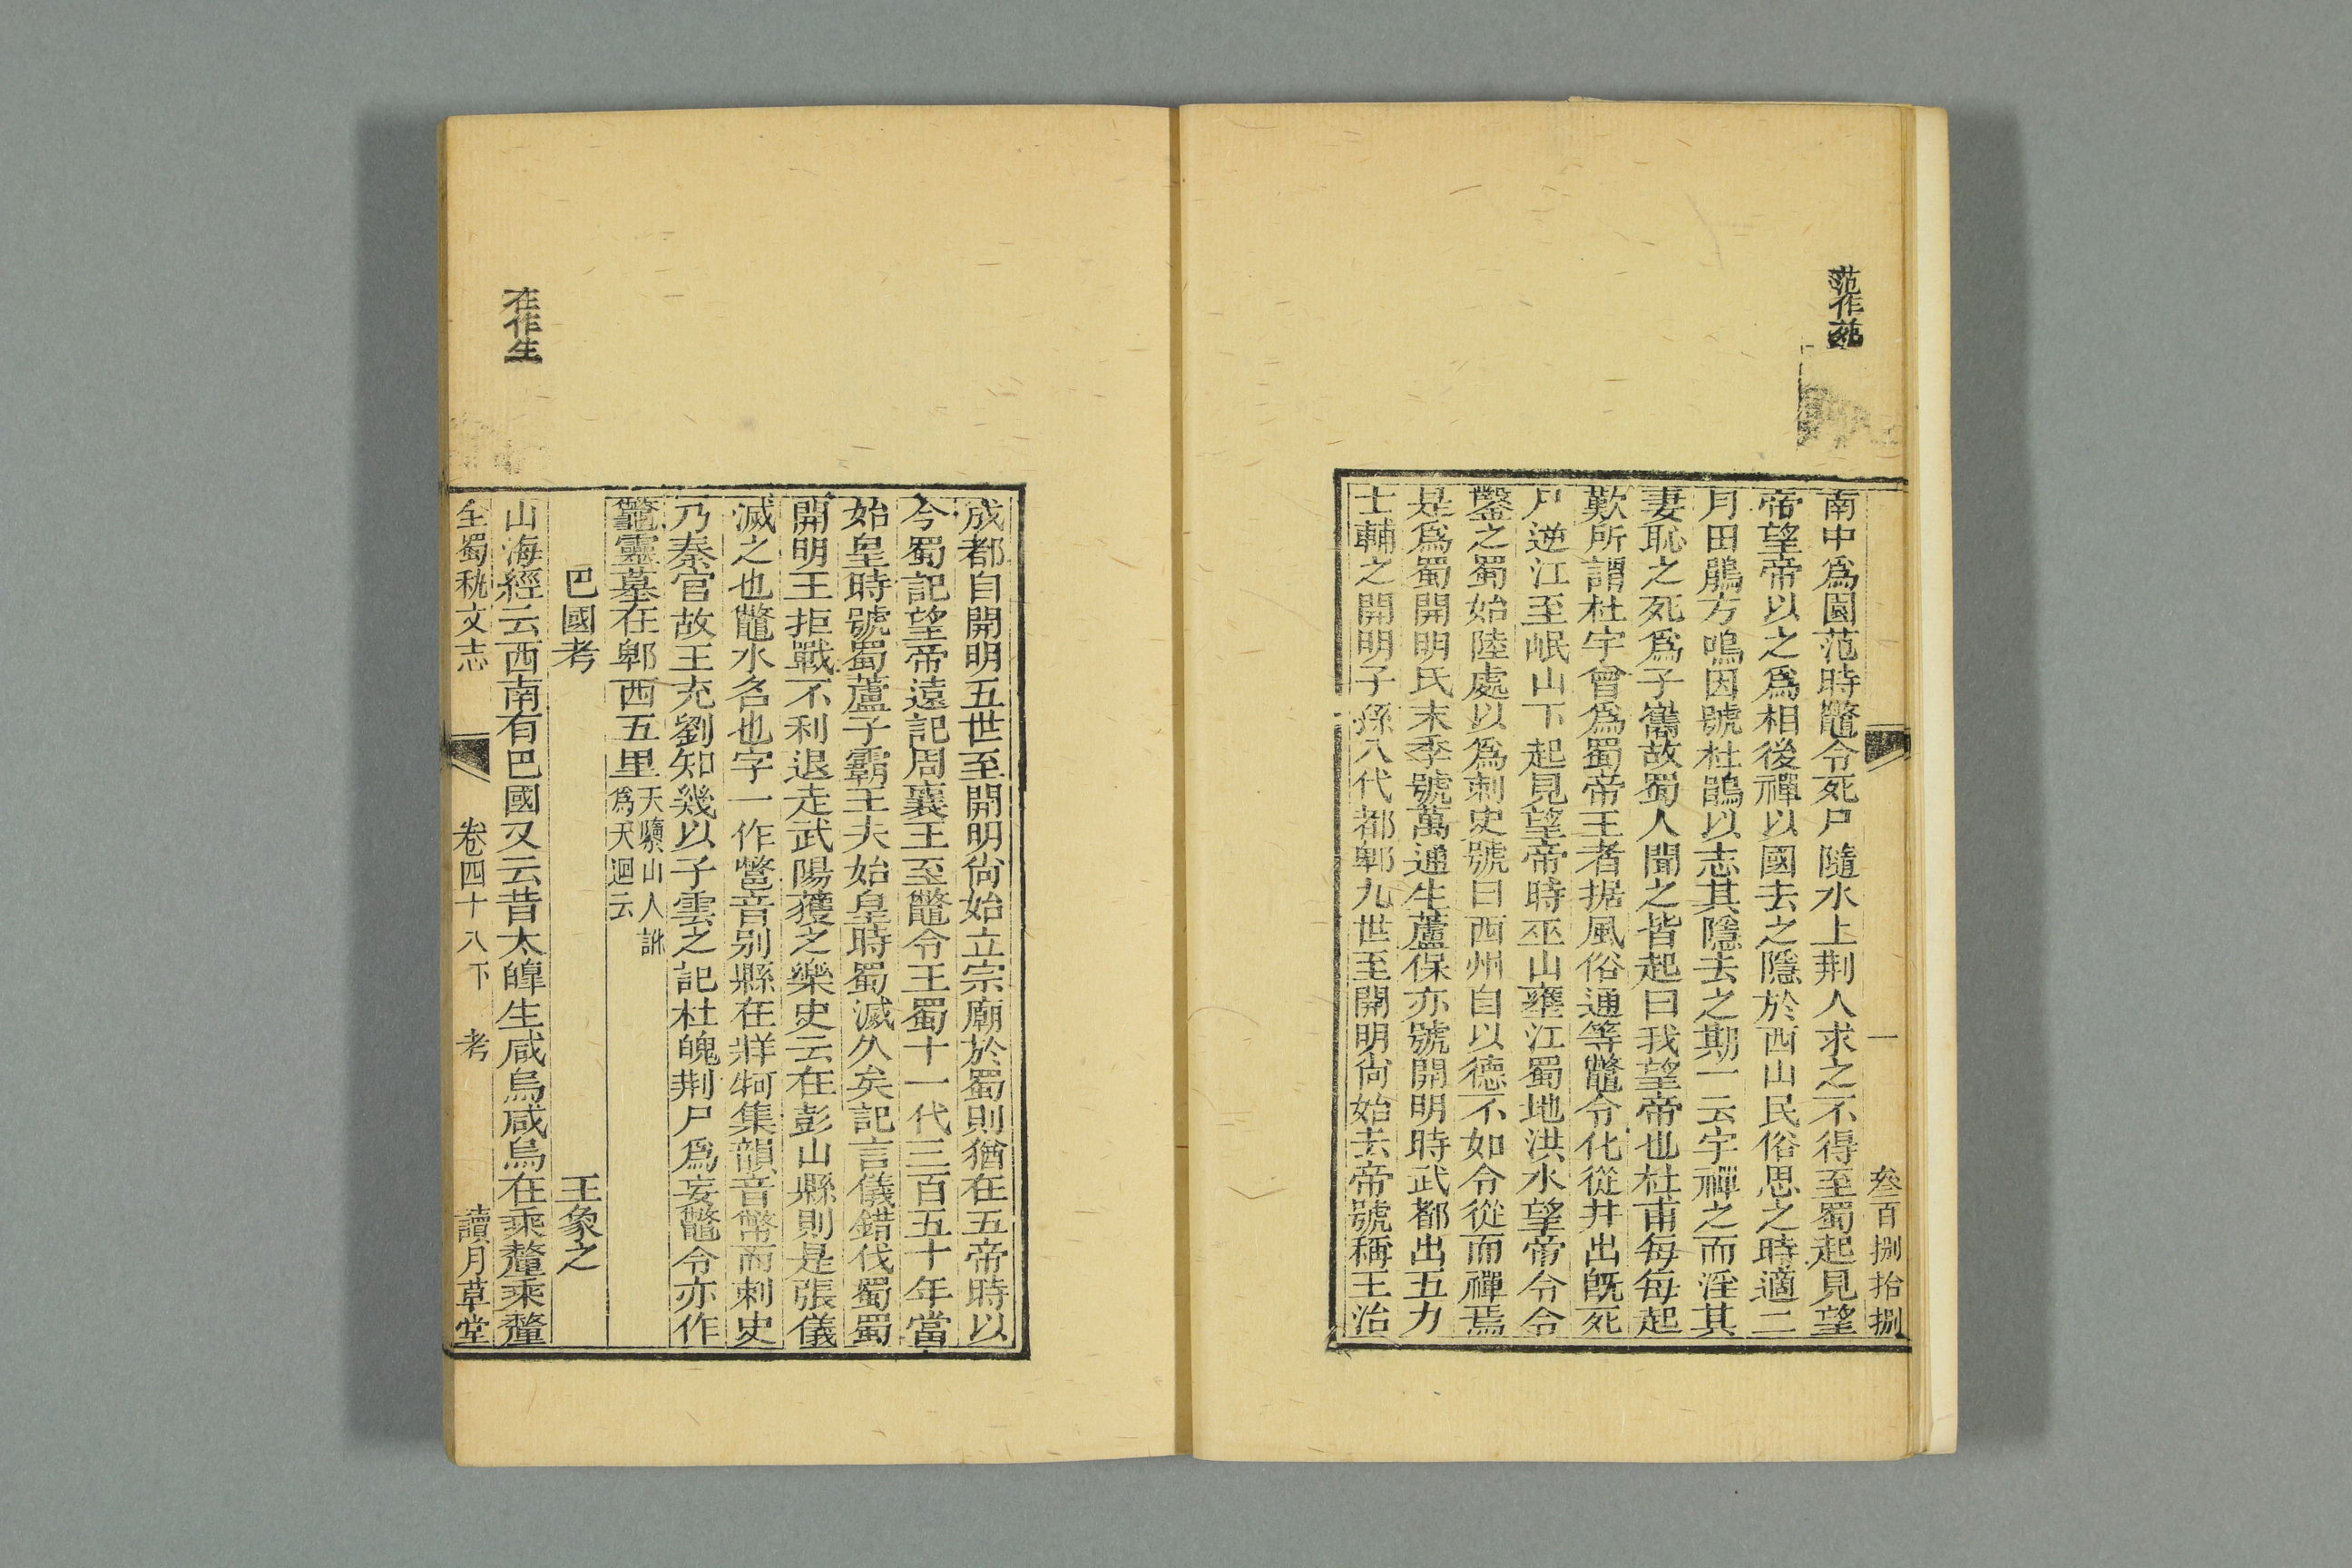 范作苑
一
叁百捌拾捌
南中爲園范時鼈令死尸隨水上荆人求之不得至蜀起見望
帝望帝以之爲相後禪以國去之隱於西山民俗思之時適二
月田鵑方鳴因號杜鵑以志其隱去之期一云宇禪之而淫其
妻恥之死爲子巂故蜀人聞之皆起曰我望帝也杜甫每每起
歎所謂杜宇曾爲蜀帝王者据風俗通等鼈令化從井出既死
尸逆江至岷山下起見望帝時巫山壅江蜀地洪水望帝令令
鑿之蜀始陸處以爲刺史號曰西州自以德不如令從而禪焉
是爲蜀開明氏末季號萬通生蘆保亦號開明時武都出五力
士輔之開明子孫八代都郫九世至開明尚始去帝號稱王治
成都自開明五世至開明尚始立宗廟於蜀則猶在五帝時以
今蜀記望帝遠記周襄王至鼈令王蜀十一代三百五十年當
始皇時號蜀蘆子霸王夫始皇時蜀滅久矣記言儀錯伐蜀蜀
開明王拒戰不利退走武陽獲之樂史云在彭山縣則是張儀
滅之也鼈水名也字一作鷩音别縣在牂牁集韻音幣而刺史
乃秦官故王充劉知幾以子雲之記杜魄荆尸爲妄鼈令亦作
鼈靈墓在郫西五里天隳山人訛
爲天迴云
巴國考
王象之
山海經云西南有巴國又云昔太皡生咸鳥咸鳥在乘釐乘釐
在作生
全蜀秇文志
卷四十八下
考
讀月草堂